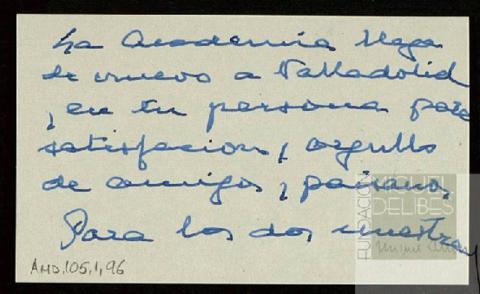 La Academia llega
de nuevo a Valladolid
, en tu persona para
satisfacion, orgullo
de amigos y paisanos,
Para los dos nuestra
AMD,105,1,96
FUNDACIÓN
MIGUEL
DELIBES